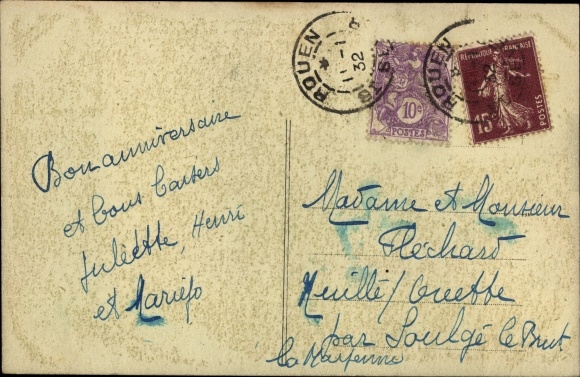 Bon anniversaire
et bons baisers
Juliette, Henri
et
ROUEN
11-1
32
10c
POSTES
ROUEN
RÉPUBLIQUE FRANÇAISE
15c
POSTES
Madame et Monsieur
Fléchard
Neuillé/Ouette
par Soulgé le Brut
La Mayenne